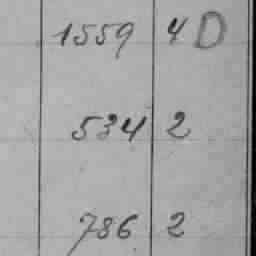 1559 4 D
534 2
786 2